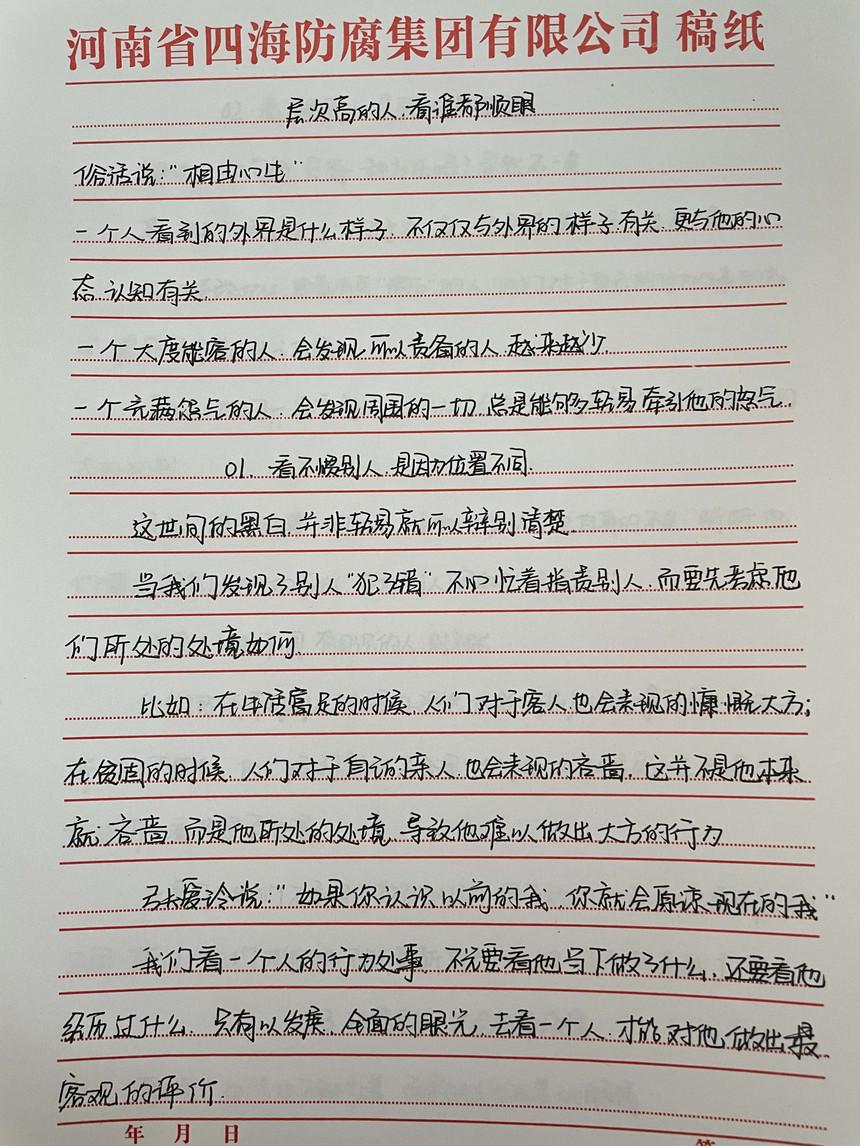 河南省四海防腐集团有限公司 稿纸
层次高的人,看谁都顺眼
俗话说:"相由心生"
一个人看到的外界是什么样子,不仅仅与外界的样子有关,更与他的心
态认知有关.
一个大度能容的人,会发现所以责备的人越来越少.
一个充满怨气的人,会发现周围的一切总是能够轻易牵引他的怒气.
01. 看不惯别人,是因为位置不同.
这世间的黑白,并非轻易就可以辩别清楚.
当我们发现了别人"犯了错"不心忙着指责别人,而要先考虑他
们所处的处境如何.
比如:在生活富足的时候,人们对于客人也会表现的慷慨大方;
在贫困的时候 人们对于自访的亲人,也会表现的吝啬,这并不是他本来
就吝啬 而是他所处的处境,导致他难以做出大方的行为
张爱玲说:"如果你认识以前的我,你就会原谅现在的我"
我们看一个人的行为处事,不光要看他当下做了什么,还要看他
经历过什么,只有以发展、全面的眼光,去看一个人,才能对他做出最
客观的评价.
年 月 日
第